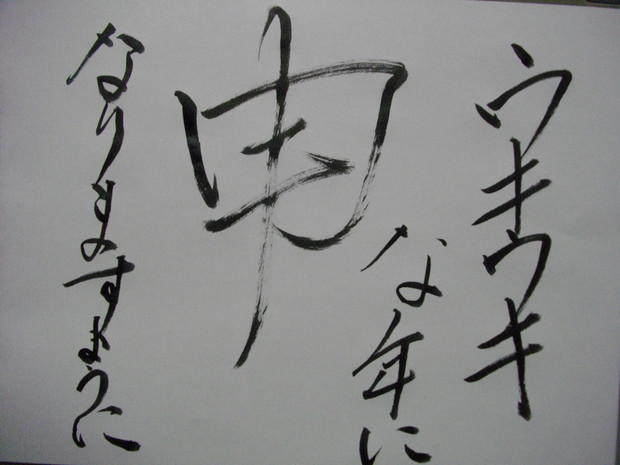 ウキウキ
な年に
申
なりますように